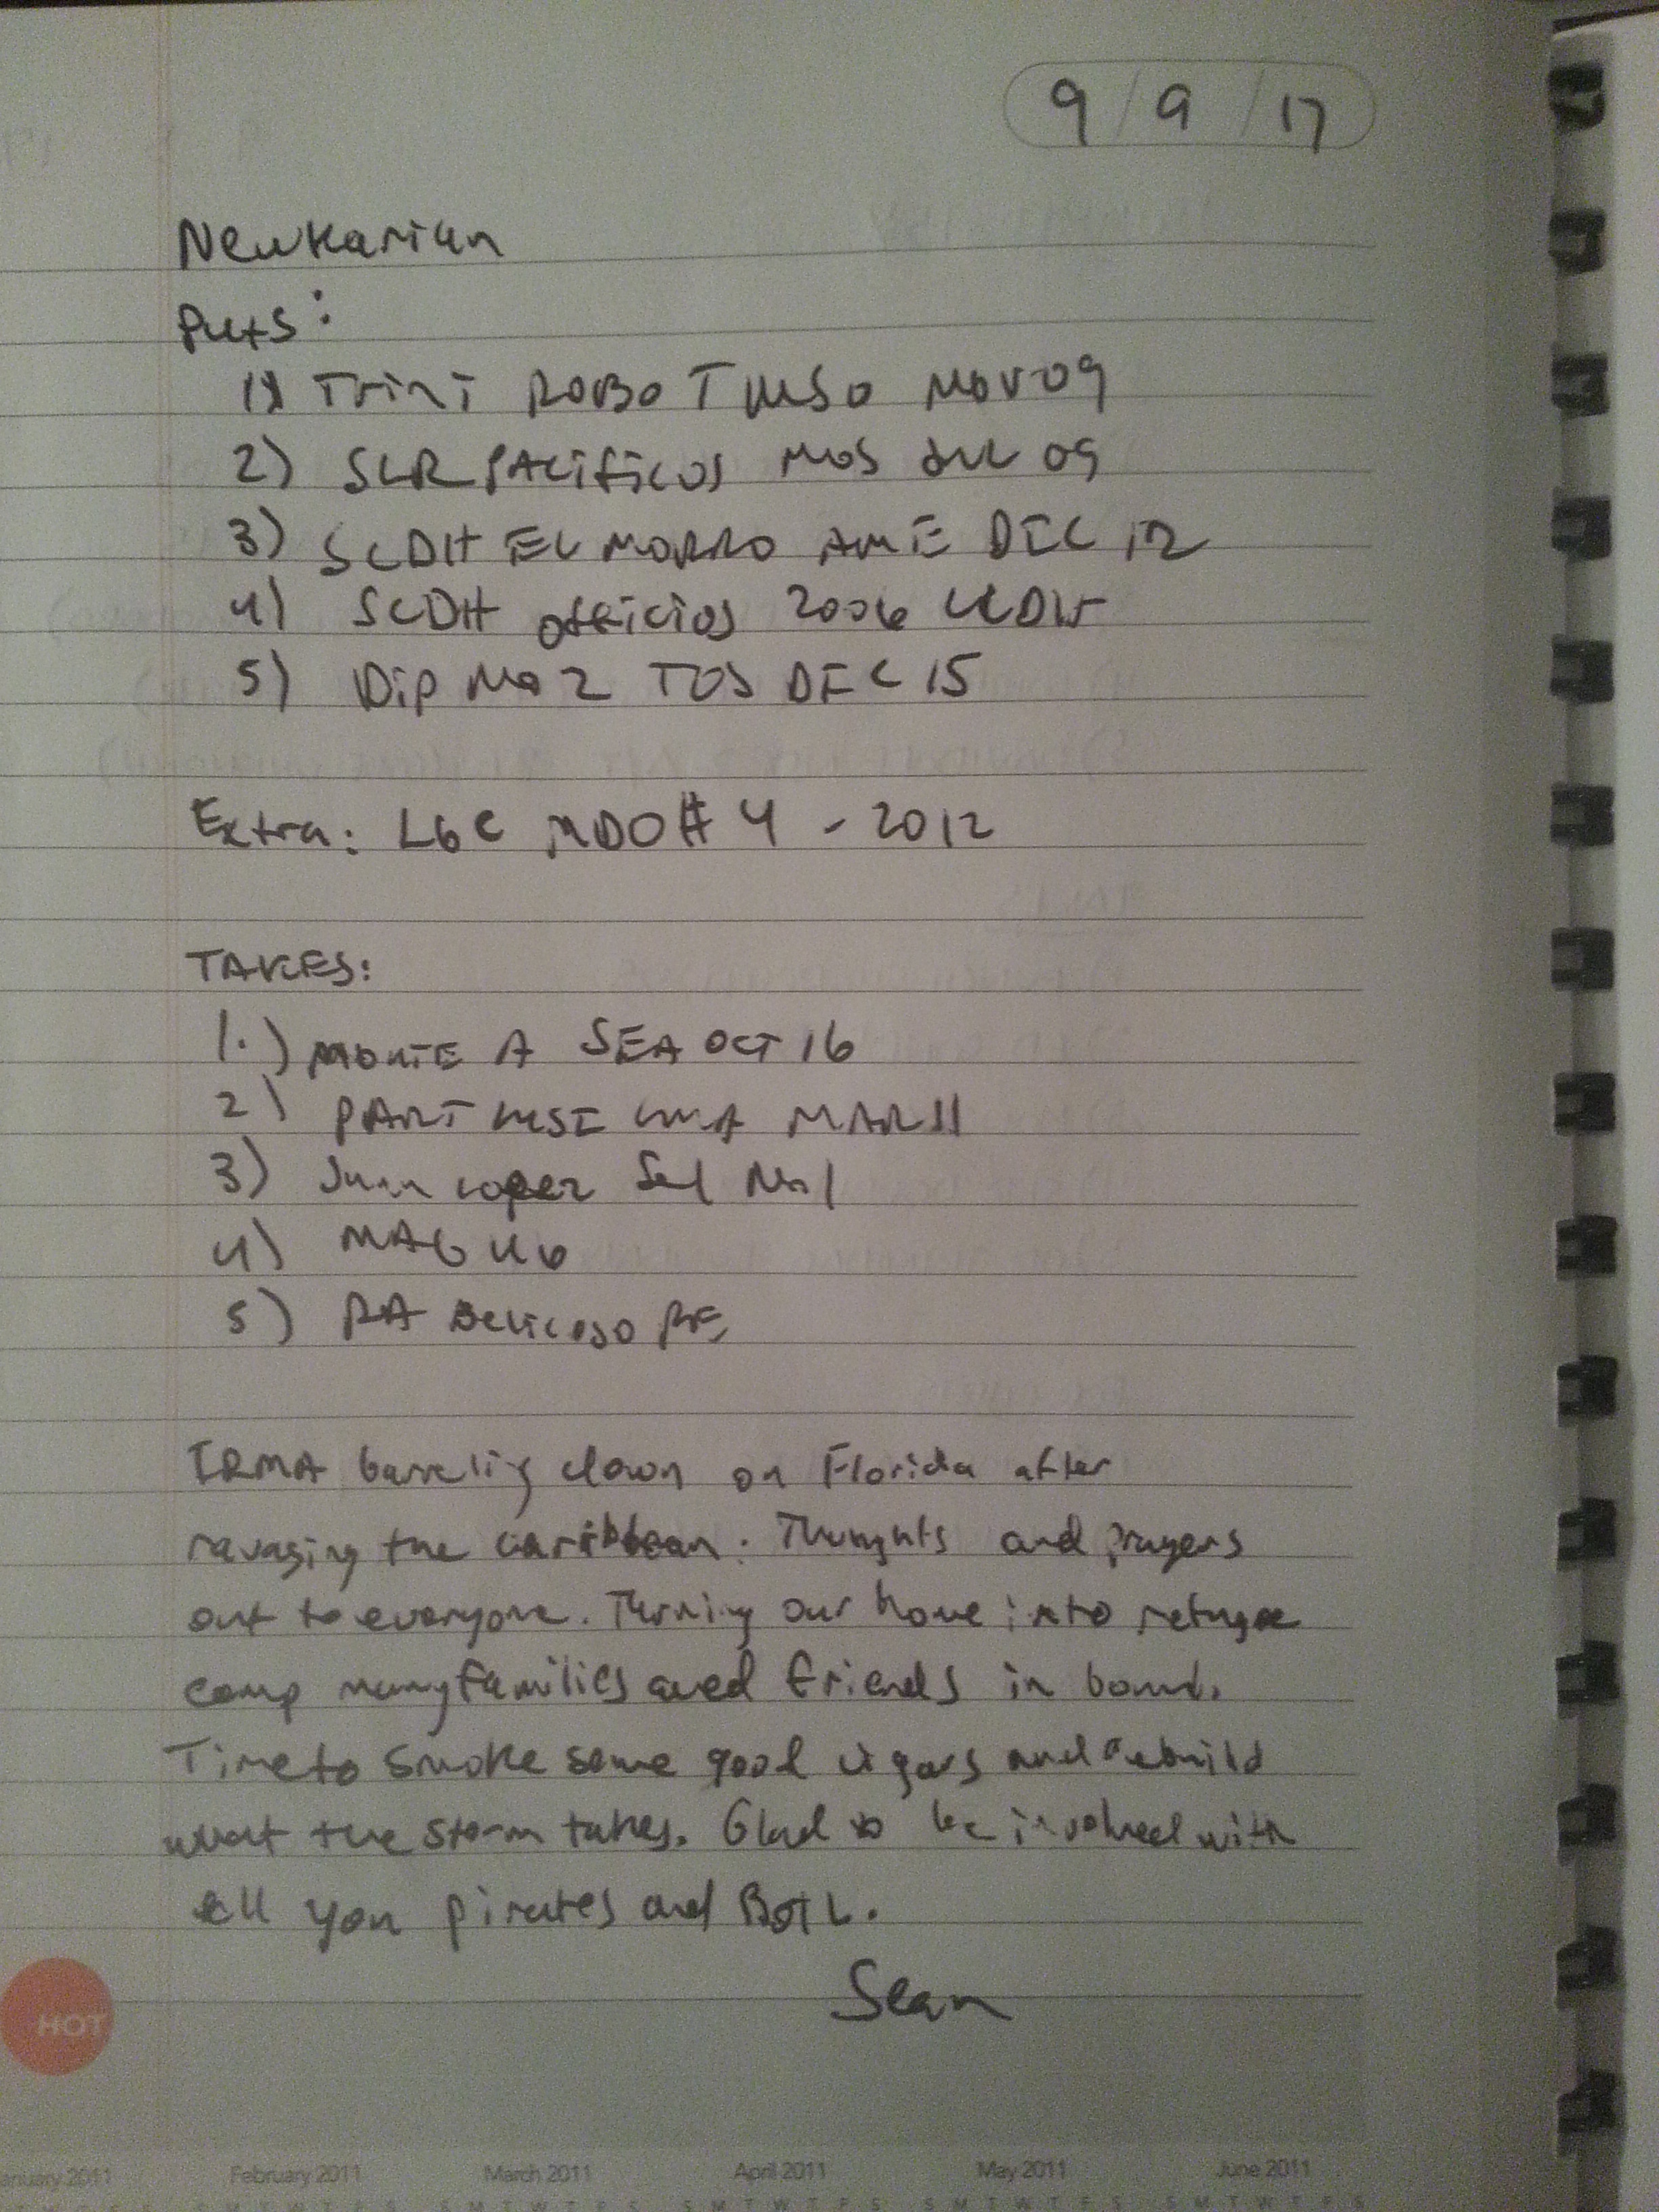 9/9/17
Newkarian
Puts:
1) Trini Robo T MSO Nov 09
2) SLR Pacificos MOS Jul 09
3) SCDH EL MORRO AME DEC 12
4) SCDH Oficios 2006
5) Dip No 2 TOS DEC 15
Extra: LGC MDO #4 - 2012
TAKES:
1.) MONTE A SEA OCT 16
2) PART MAR 11
3) Juan Lopez Sel No 1
4) MAG 46
5) RA Belicoso RE
IRMA down on Florida after
ravaging the Caribbean. Thoughts and prayers
out to everyone. Turning our home into refugee
camp many families and friends in bound.
Time to smoke some good cigars and rebuild
what the storm takes. Glad to be involved with
all you pirates and BOTL.
Sean
HOT
January 2011 February 2011 March 2011 April 2011 May 2011 June 2011